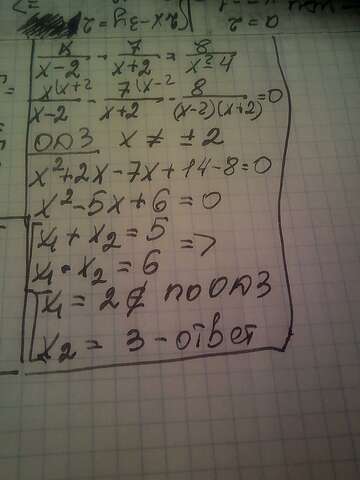 2x-3y=2
a=2
x/(x-2) - 7/(x+2) = 8/(x²-4)
x(x+2/(x-2) - 7(x-2/(x+2) - 8/((x-2)(x+2)) =0
ОДЗ x ≠ ±2
x²+2x-7x+14-8=0
x²-5x+6=0
x₁+x₂=5
=>
x₁·x₂=6
x₁=2∉ по ОДЗ
x₂= 3-ответ